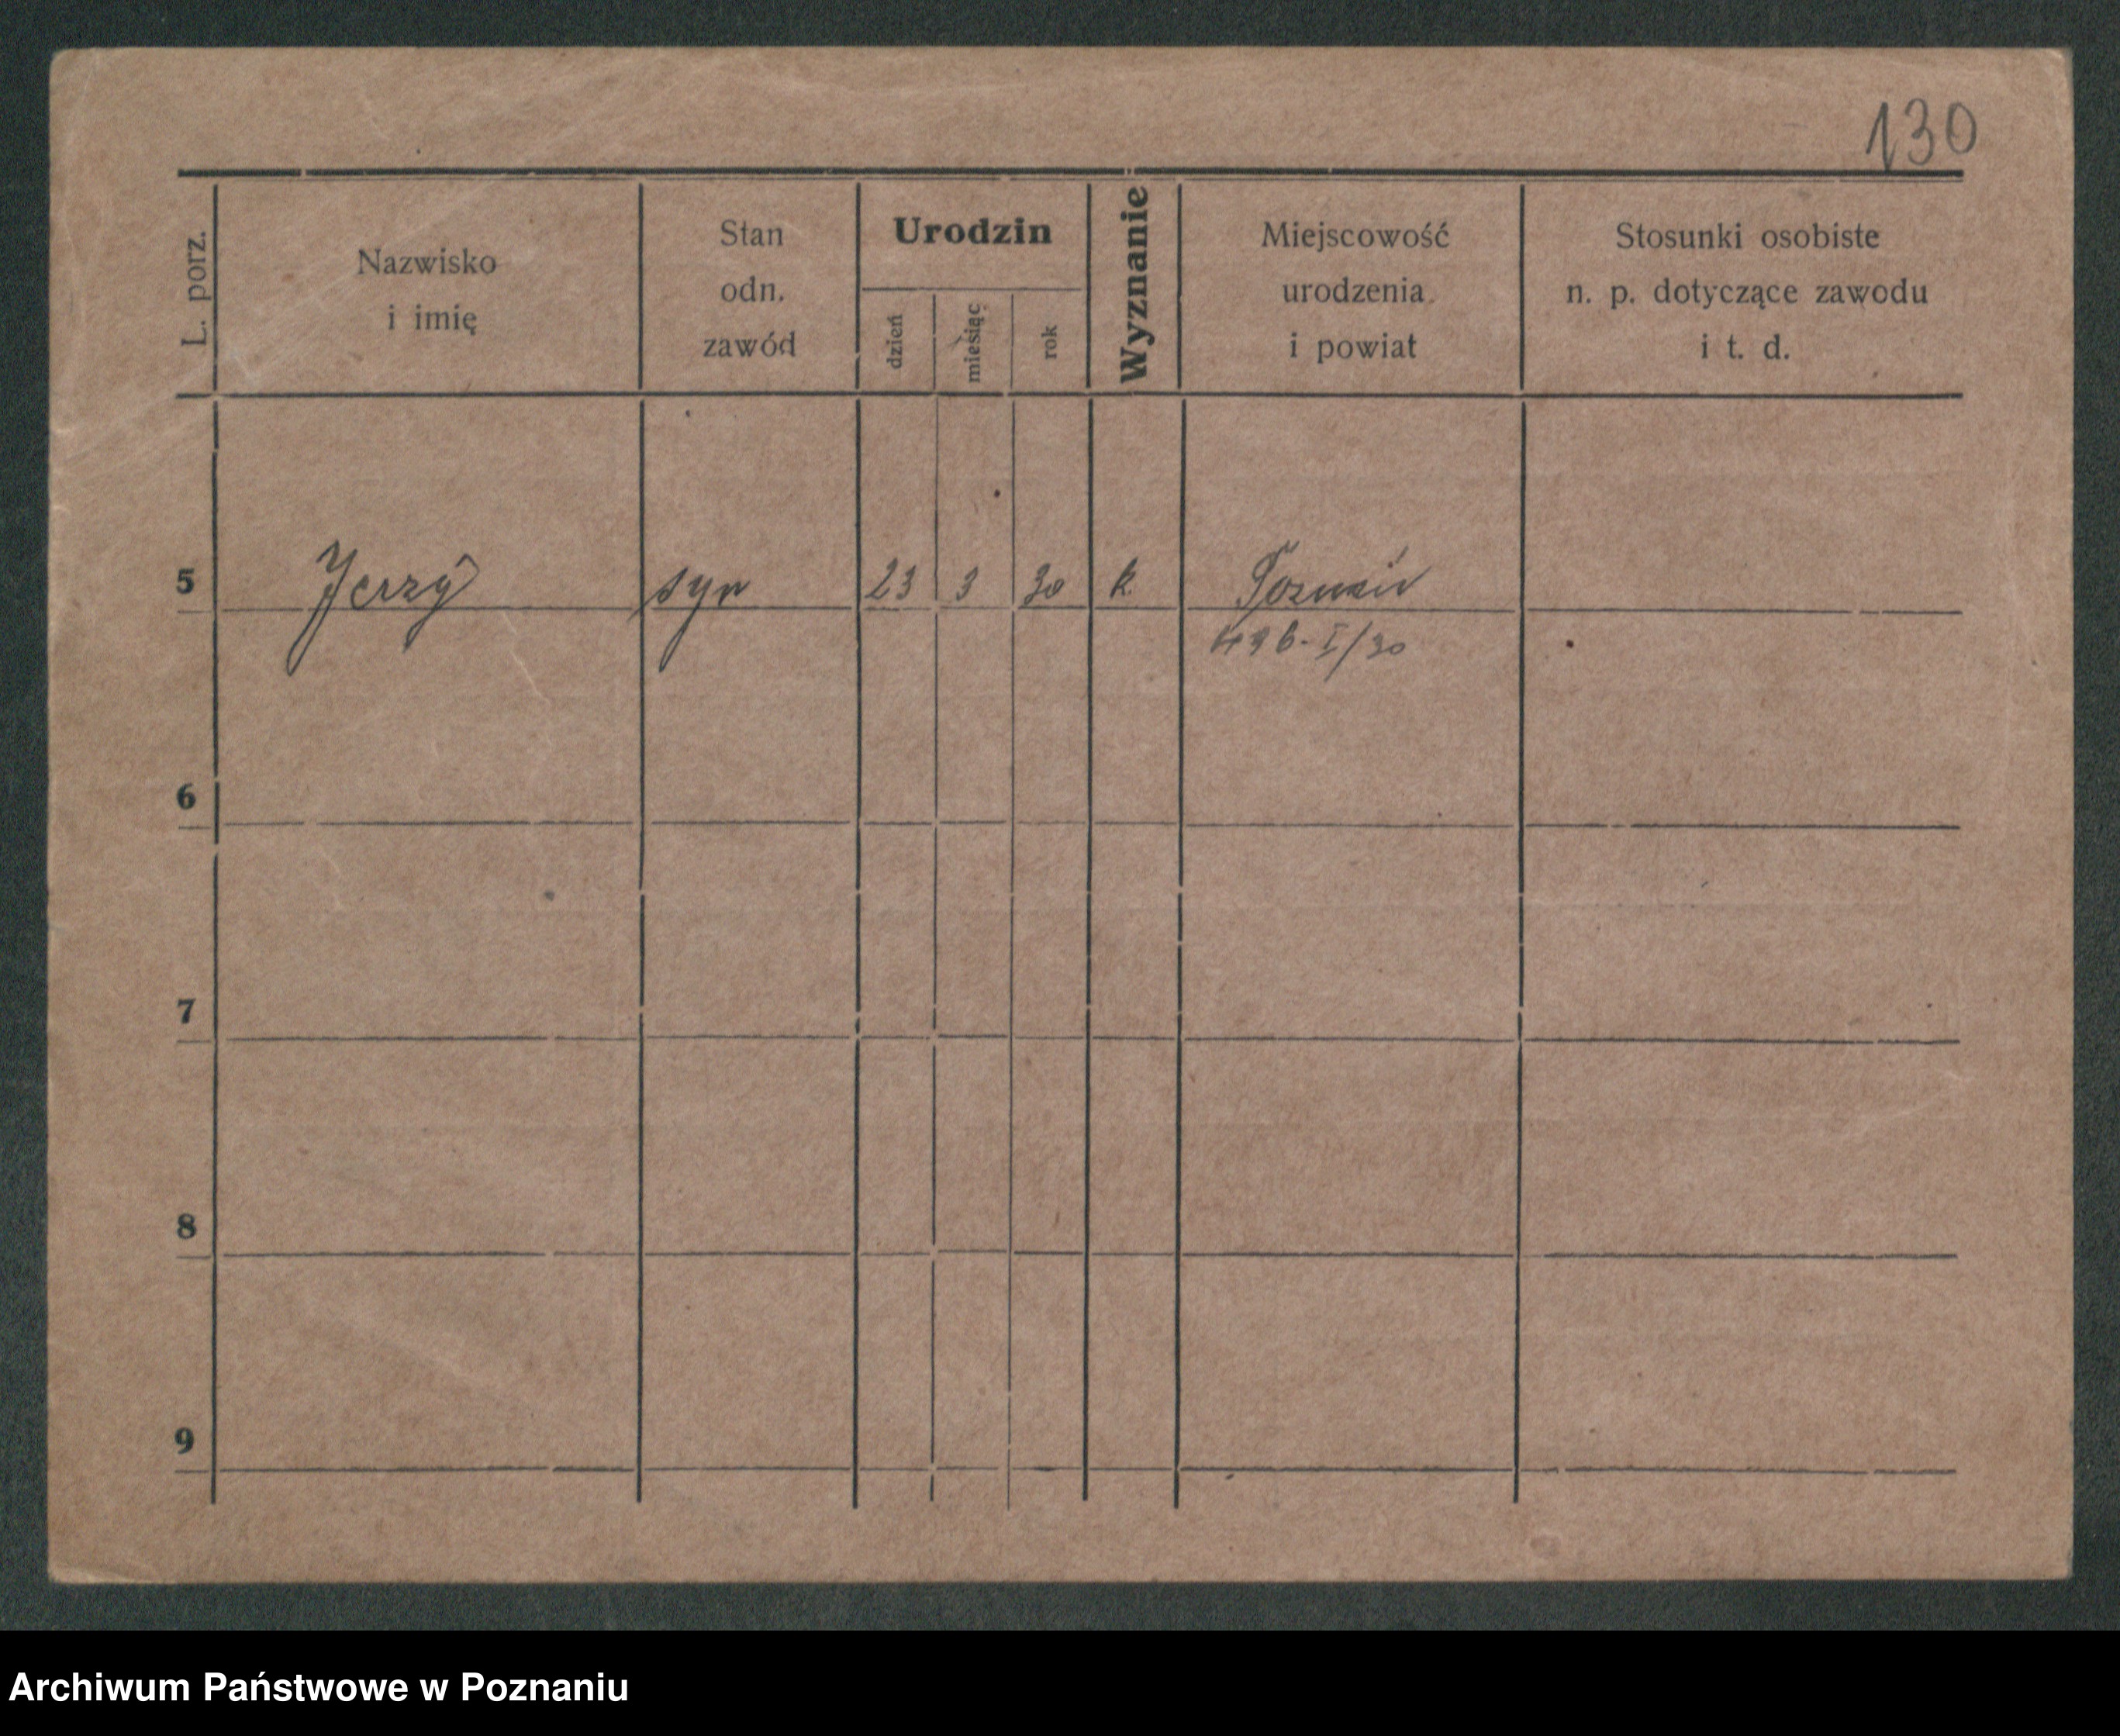 130
L. porz.
Nazwisko
i imię
Stan
odn.
zawód
Urodzin
dzień
miesiąc
rok
Wyznanie
Miejscowość
urodzenia
i powiat
Stosunki osobiste
n. p. dotyczące zawodu
i t. d.
5 Jerzy syn 23 3 30 k. Poznań
496-I/30
6
7
8
9
Archiwum Państwowe w Poznaniu